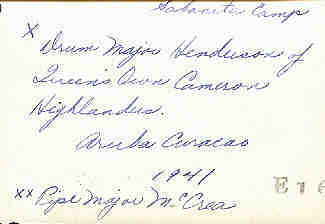 Sabanita Camp
x
Drum Major Henderson of
Queens Own Cameron
Highlanders.
Aruba Curacao
1941
xx Pipe Major McCrea
E16